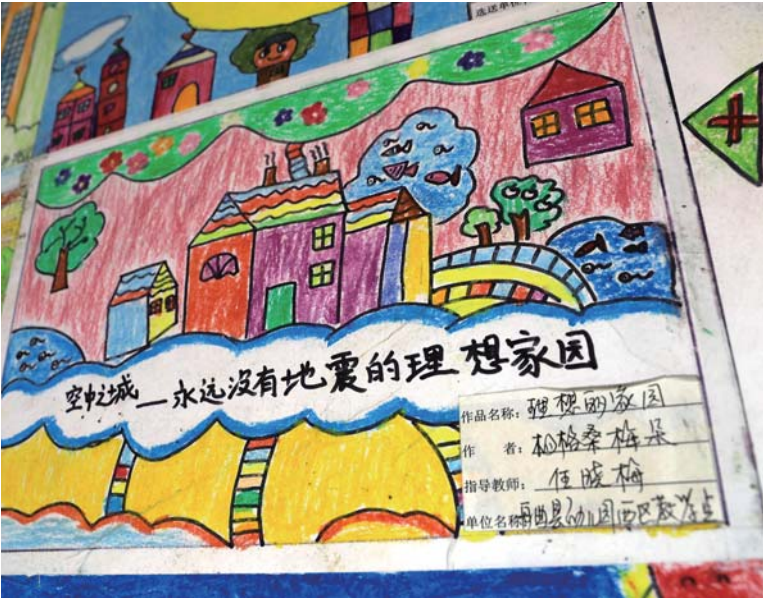 选送单位
空中之城—永远没有地震的理想家园
作品名称：理想的家园
作 者：格桑梅朵
指导教师：任晓梅
单位名称：舟曲县幼儿园西区教学点